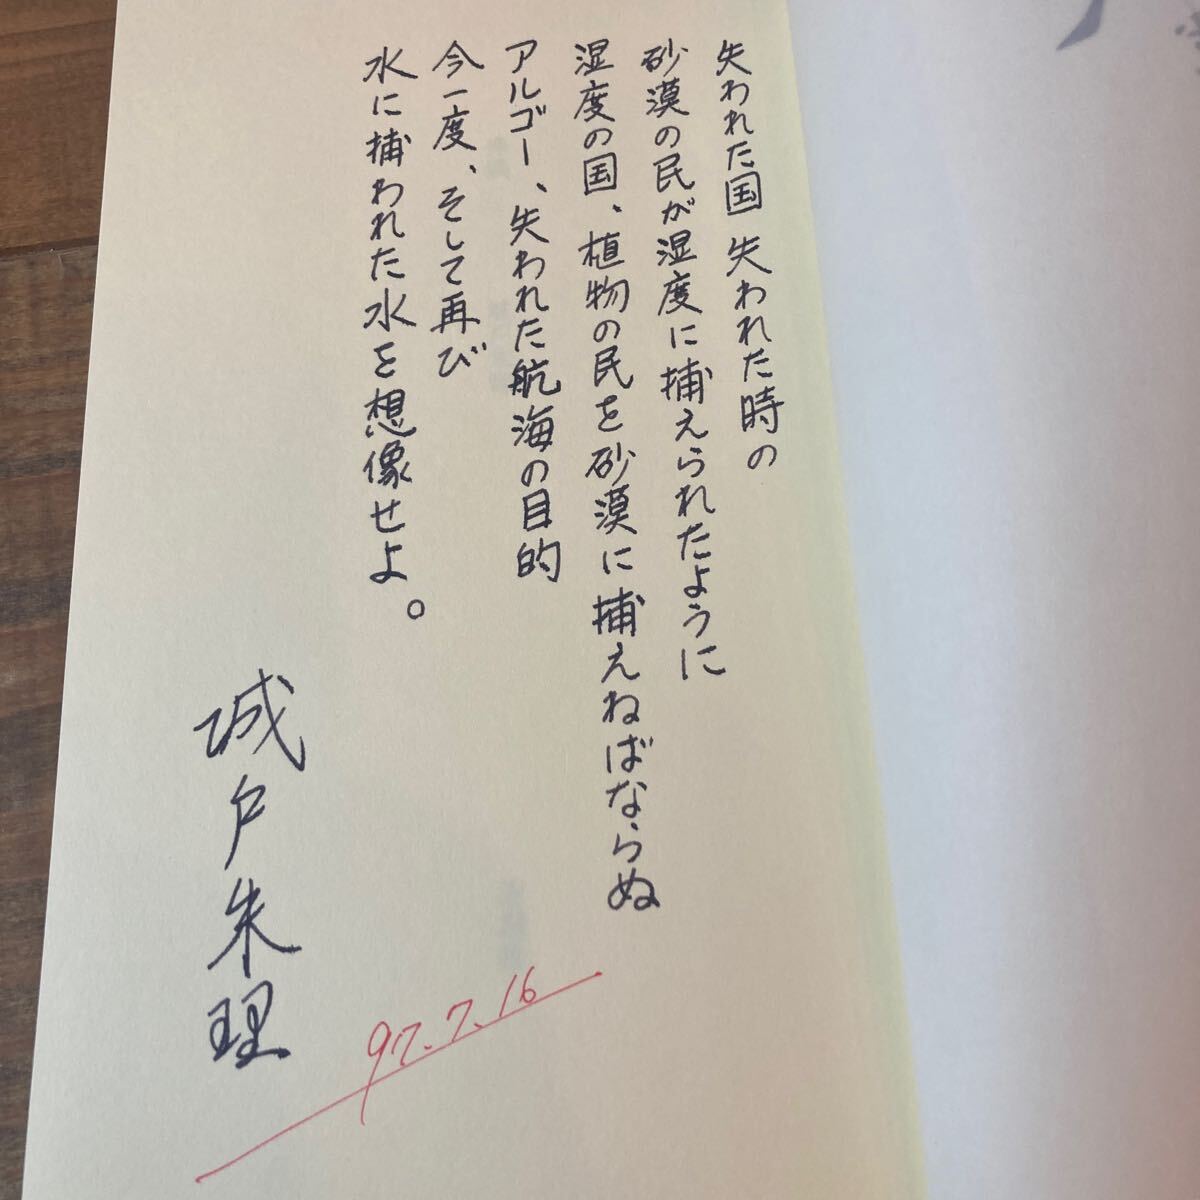 失われた国 失われた時の
砂漠の民が湿度に捕えられたように
湿度の国、植物の民を砂漠に捕えねばならぬ
アルゴー、失われた航海の目的
今一度、そして再び
水に捕われた水を想像せよ。
城戸朱理
97.7.16